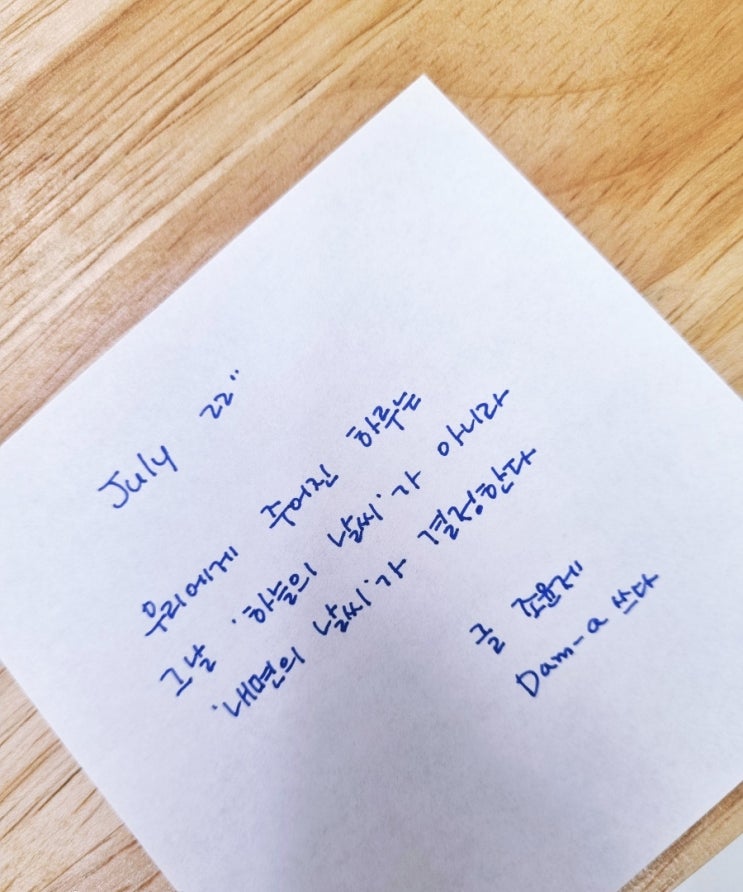 July 22"
우리에게 주어진 하루는
그날 '하늘의 날씨'가 아니라
'내면의 날씨'가 결정한다
글 조윤제
Dam-a 쓰다